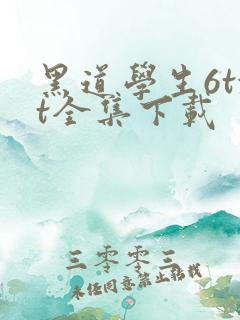 黑道學生6tx
t全集下載
三零零三
未经同意禁止转载